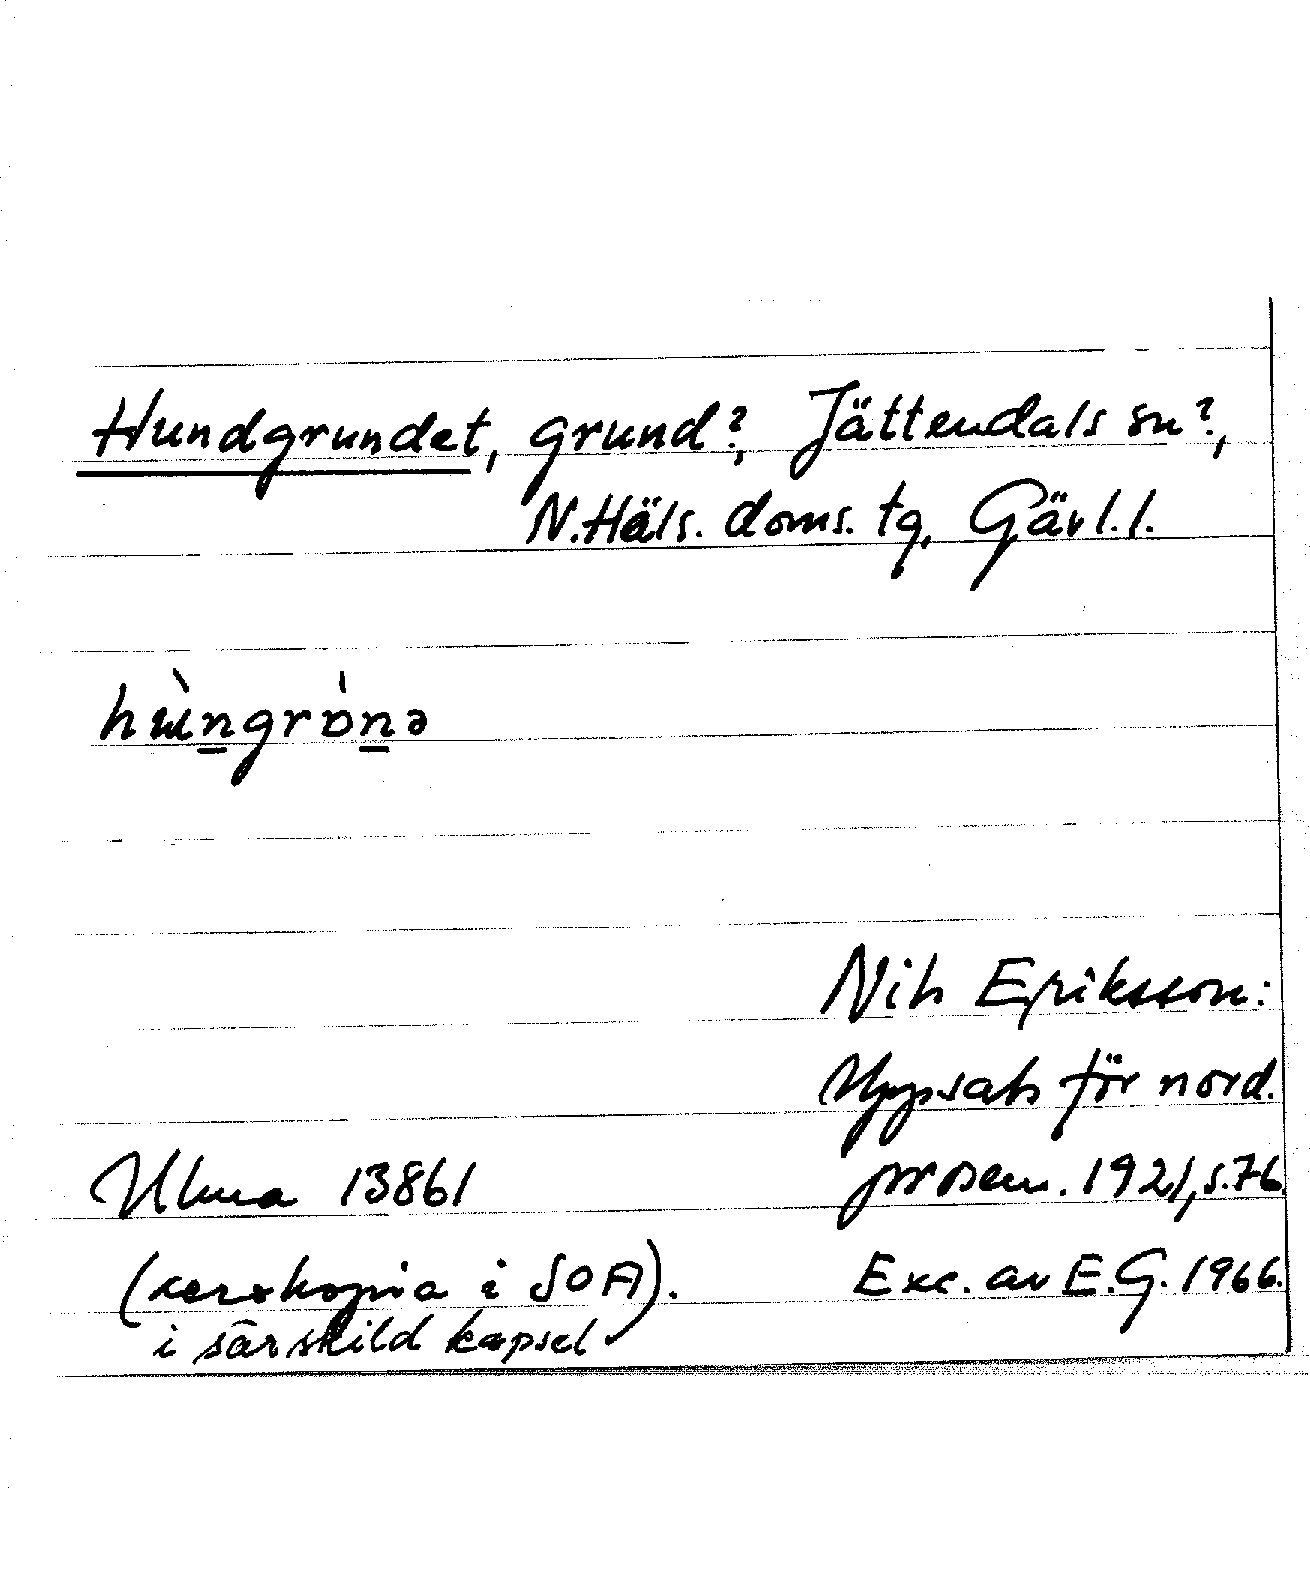 Hundgrundet, grund?, Jättendals sn?,
N.Häls. doms. tg, Gävl.l.
hùngrònə
Nils Eriksson:
Uppsats för nord.
prosem. 1921, s.76.
Ulma 13861
(xeroxkopia i SOA).
Exc. av E.G. 1966.
i särskild kapsel